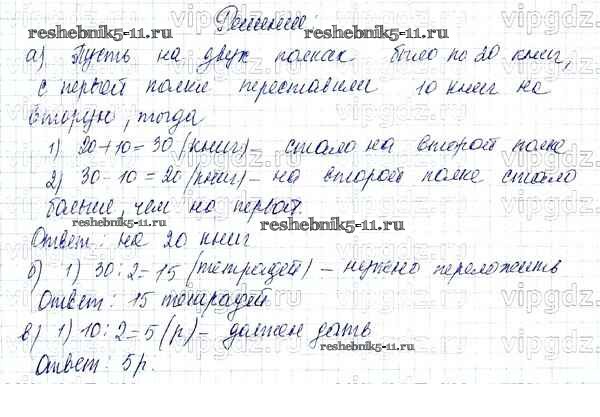 Решение:
reshebnik5-11.ru reshebnik5-11.ru
а) Пусть на двух полках было по 20 книг,
с первой полки переставили 10 книг на
вторую, тогда
1) 20+10=30 (книг) – стало на второй полке
2) 30-10=20 (книг) – на второй полке стало
больше, чем на первой.
reshebnik5-11.ru reshebnik5-11.ru
Ответ: на 20 книг
б) 1) 30:2=15 (тетрадей) – нужно переложить
Ответ: 15 тетрадей
в) 1) 10:2=5 (р) – должен дать
reshebnik5-11.ru
Ответ: 5р.
vipgdz.